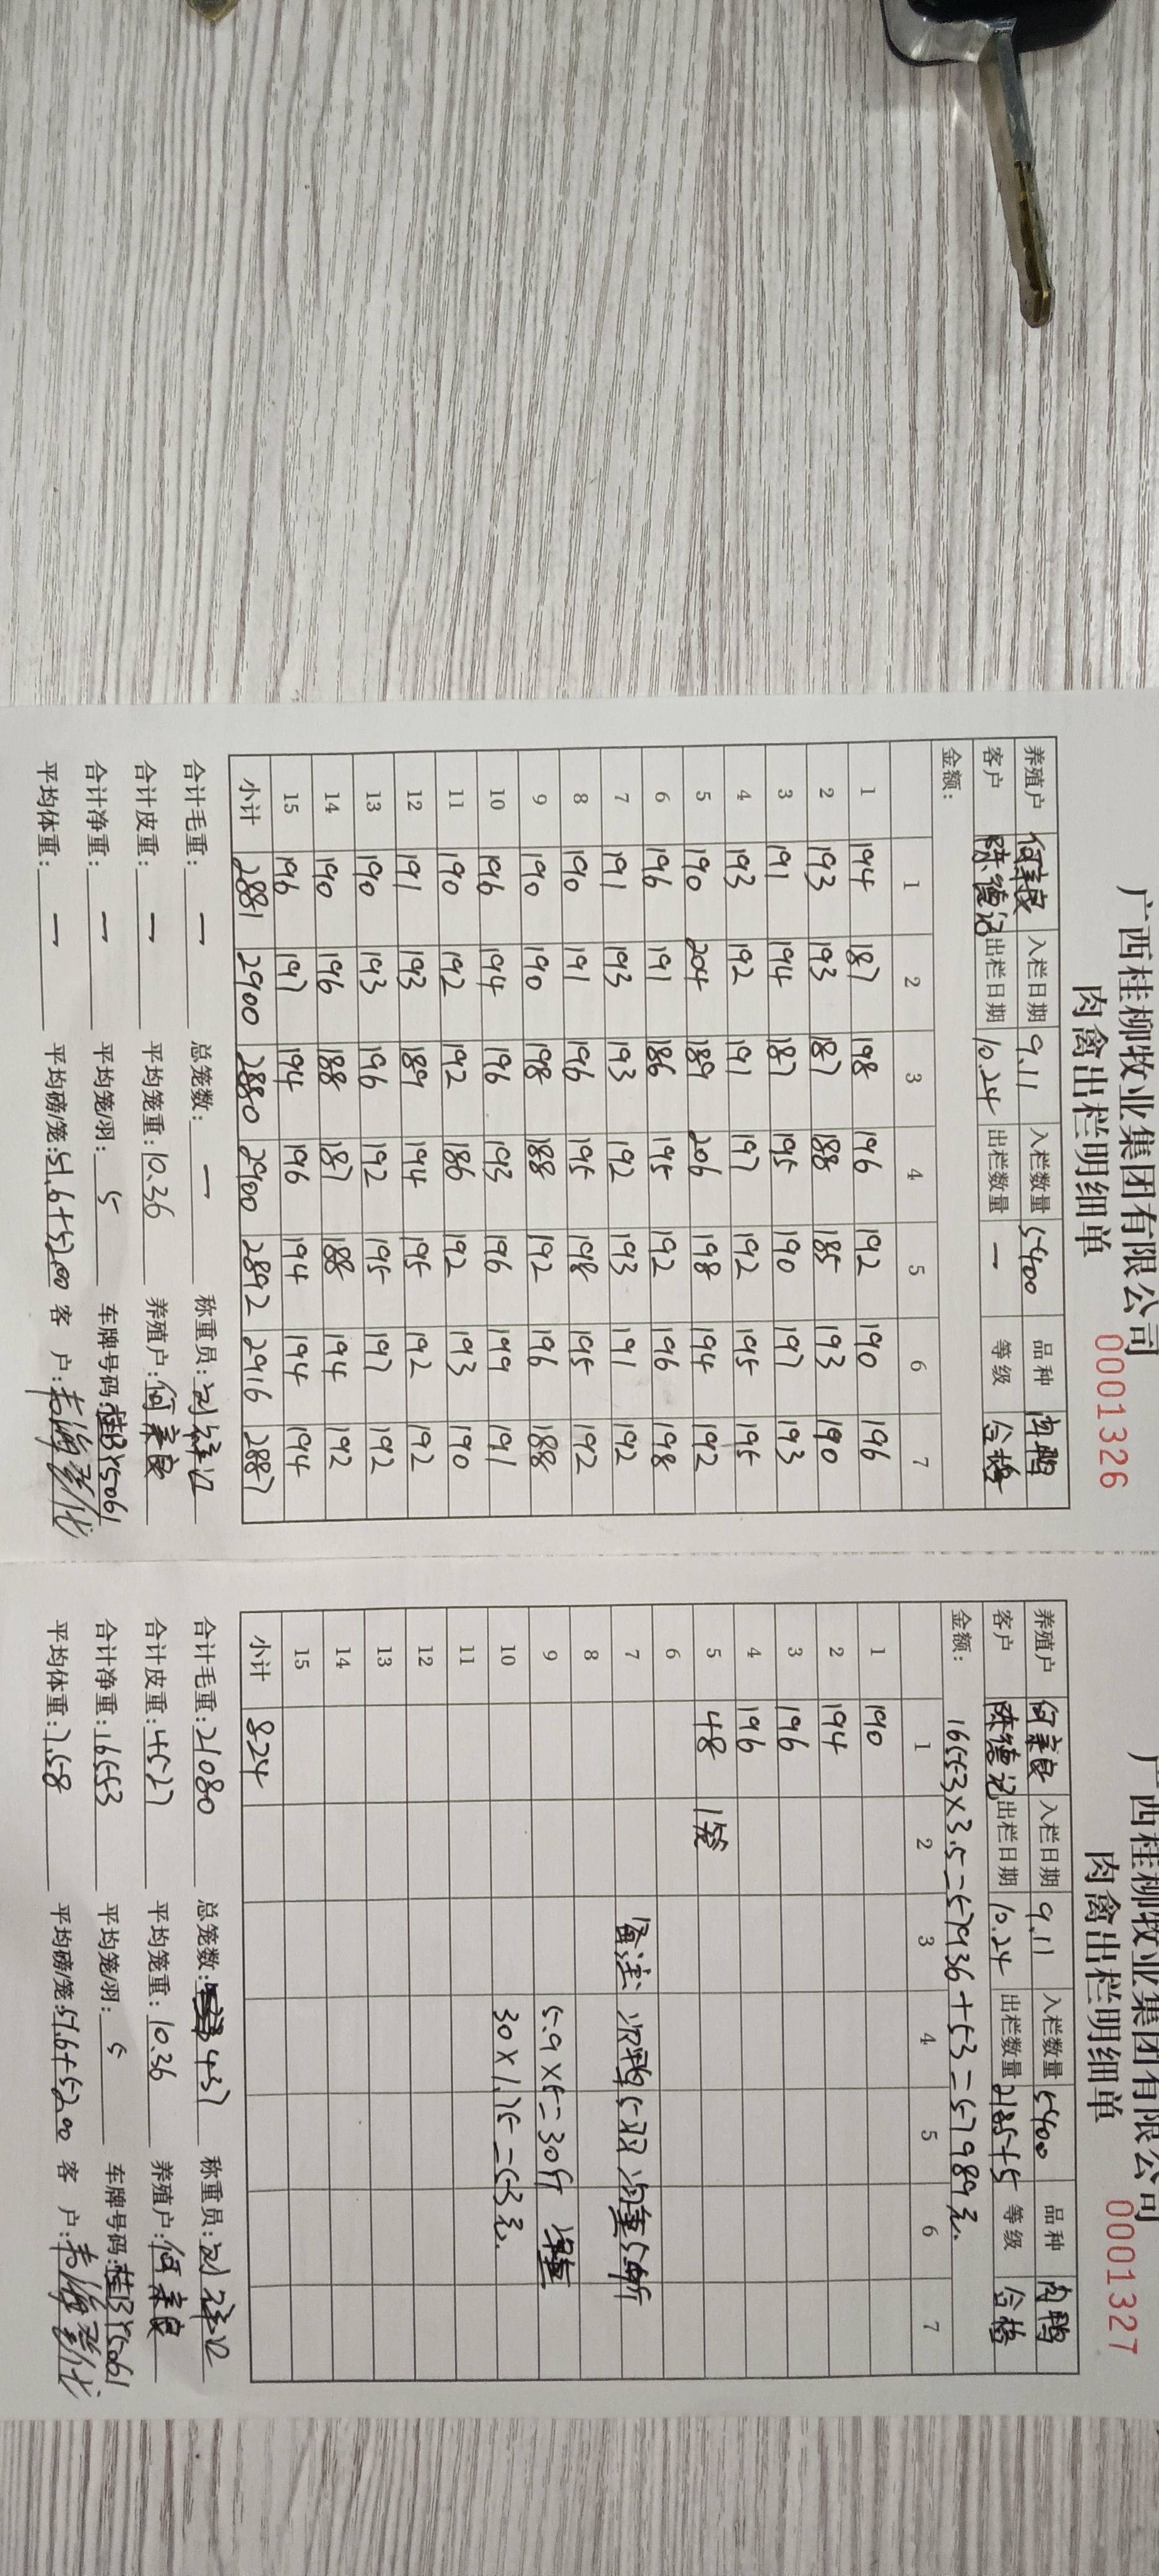 广西桂柳牧业集团有限公司
肉禽出栏明细单 0001326
养殖户 入栏日期 9.11 入栏数量 5400 品种
客户 陈德记 出栏日期 10.24 出栏数量 一 等级 合格
金额：
1 2 3 4 5 6 7
1 194 187 198 196 192 190 196
2 193 193 187 188 185 193 190
3 191 194 187 195 190 197 193
4 193 192 191 197 192 195 195
5 190 204 189 206 198 194 192
6 196 191 186 195 192 196 198
7 191 193 193 192 193 191 192
8 190 191 196 195 198 195 192
9 190 190 198 188 192 196 188
10 196 194 196 193 196 199 191
11 190 192 192 186 192 193 190
12 191 193 189 194 195 192 192
13 190 193 196 192 195 197 192
14 190 196 188 187 188 194 192
15 196 197 194 196 194 194 194
小计 2881 2900 2880 2900 2892 2916 2887
合计毛重：一 总笼数：一 称重员：
合计皮重：一 平均笼重：10.36 养殖户：
合计净重：一 平均笼/羽：5 车牌号码：桂BY5061
平均体重：一 平均磅/笼：51.6+52.00 客 户：
广西桂柳牧业集团有限公司
肉禽出栏明细单 0001327
养殖户 入栏日期 9.11 入栏数量 5400 品种 肉鸭
客户 陈德记 出栏日期 10.24 出栏数量 2185+5 等级 合格
金额：16553×3.5=57936+53=57989元.
1 2 3 4 5 6 7
1 190
2 194
3 196
4 196
5 48 1笼
6
7 备注：次鸭5羽 均重5.9斤
8
9 5.9×5=30斤
10 30×1.75=53元.
11
12
13
14
15
小计 824
合计毛重：21080 总笼数：437 称重员：
合计皮重：4527 平均笼重：10.36 养殖户：
合计净重：16553 平均笼/羽：5 车牌号码：桂BY5061
平均体重：7.58 平均磅/笼：51.6+52.00 客 户：